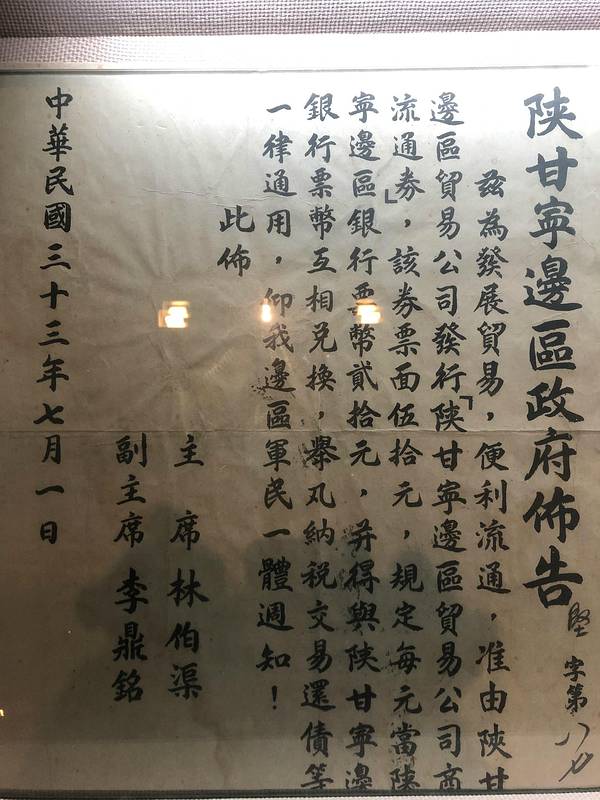 陝甘寧邊區政府佈告
堅字第八七
茲為發展貿易，便利流通，准由陝甘
邊區貿易公司發行「陝甘寧邊區貿易公司商
流通券」，該券票面伍拾元，規定每元當陝
寧邊區銀行票幣貳拾元，并得與陝甘寧邊
銀行票幣互相兑換，舉凡納税交易還債等
一律通用，仰我邊區軍民一體週知！
此佈
主席 林伯渠
副主席 李鼎銘
中華民國三十三年七月一日